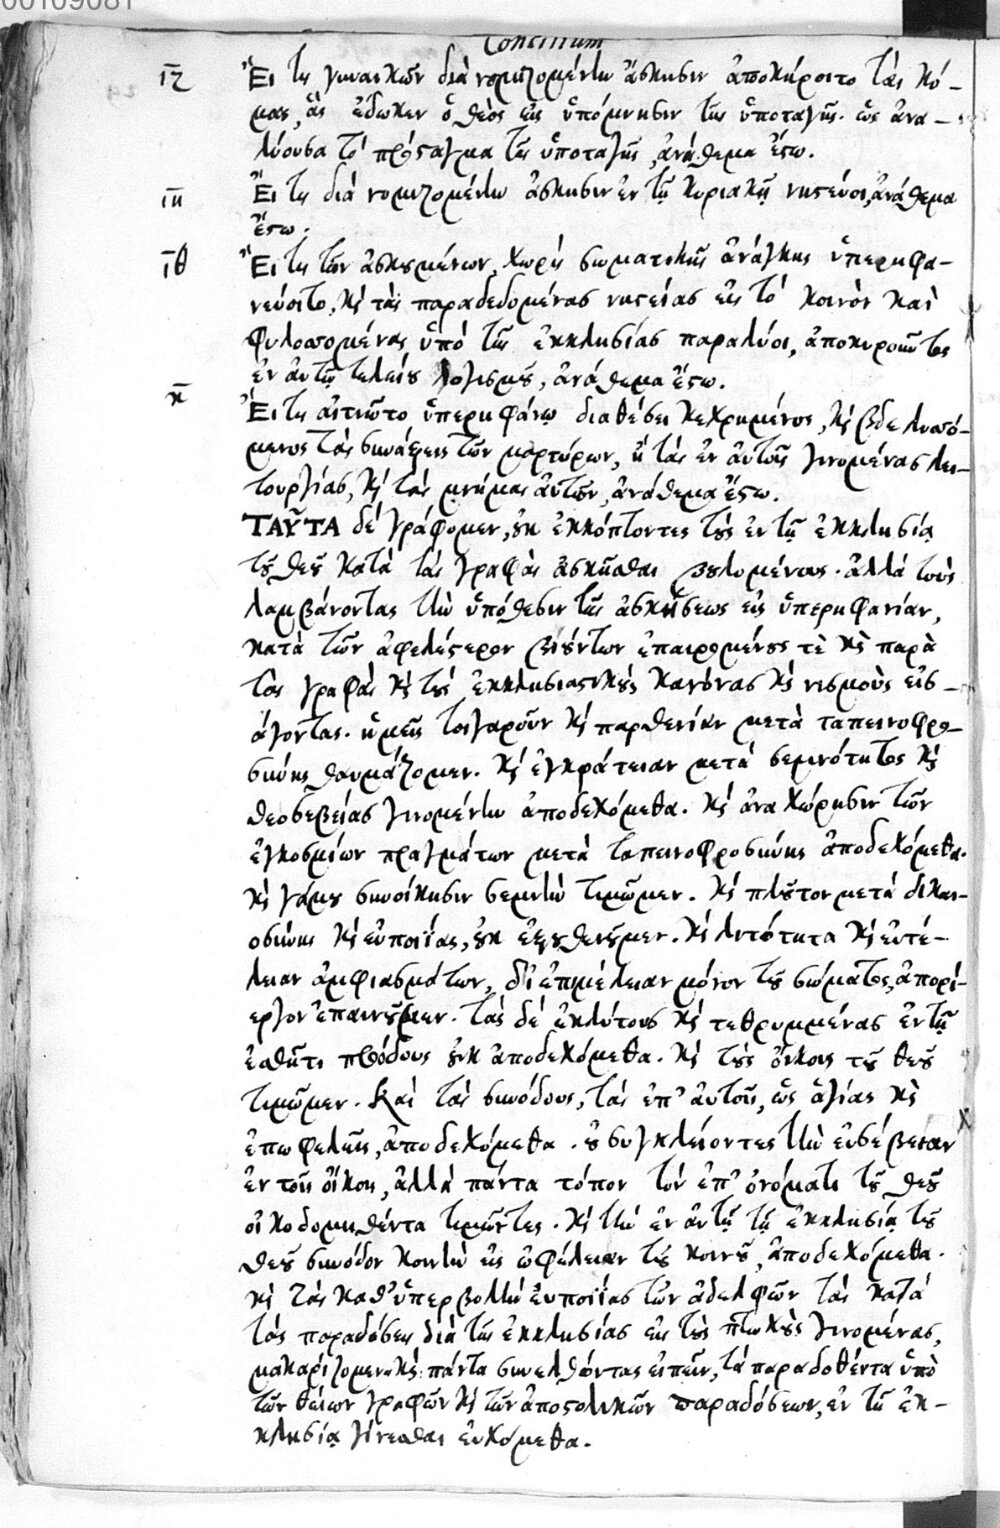 00109081
Concilium
ιζ Ἔι τις γυναικῶν διὰ νομιζομένην ἄσκησιν ἀποκείροιτο τὰς κό-
μας, ἃς ἔδωκεν ὁ θεὸς εἰς ὑπόμνησιν τῆς ὑποταγῆς. ὡς ἀνα-
λύουσα τὸ πρόσταγμα τῆς ὑποταγῆς, ἀνάθεμα ἔστω.
ιη Ἔι τις διὰ νομιζομένην ἄσκησιν ἐν τῇ κυριακῇ νηστεύοι, ἀνάθεμα
ἔστω.
ιθ Ἔι τις τῶν ἀσκουμένων, χωρὶς σωματικῆς ἀνάγκης ὑπερηφα-
νεύοιτο, καὶ τὰς παραδεδομένας νηστείας εἰς τὸ κοινὸν καὶ
φυλασσομένας ὑπὸ τῆς ἐκκλησίας παραλύοι, ἀποκυροῦντος
ἐν αὐτῷ τελείου λογισμοῦ, ἀνάθεμα ἔστω.
κ Ἔι τις αἰτιῶτο ὑπερηφάνῳ διαθέσει κεχρημένος, καὶ βδελυσσό-
μενος τὰς συνάξεις τῶν μαρτύρων, ἢ τὰς ἐν αὐτοῖς γινομένας λει-
τουργίας, καὶ τὰς μνήμας αὐτῶν, ἀνάθεμα ἔστω.
ΤΑΥ͂ΤΑ δὲ γράφομεν, οὐκ ἐκκόπτοντες τοὺς ἐν τῇ ἐκκλησίᾳ
τοῦ θεοῦ κατὰ τὰς γραφὰς ἀσκεῖσθαι βουλομένους. ἀλλὰ τοὺς
λαμβάνοντας τὴν ὑπόθεσιν τῆς ἀσκήσεως εἰς ὑπερηφανίαν,
κατὰ τῶν ἀφελέστερον βιούντων ἐπαιρομένους τὲ καὶ παρὰ
τὰς γραφὰς καὶ τοὺς ἐκκλησιαστικοὺς κανόνας καινισμοὺς εἰσ-
άγοντας. ἡμεῖς τοιγαροῦν καὶ παρθενίαν μετὰ ταπεινοφρο-
σύνης θαυμάζομεν. καὶ ἐγκράτειαν μετὰ σεμνότητος καὶ
θεοσεβείας γινομένην ἀποδεχόμεθα. καὶ ἀναχώρησιν τῶν
ἐγκοσμίων πραγμάτων μετὰ ταπεινοφροσύνης ἀποδεχόμεθα.
καὶ γάμου συνοίκησιν σεμνὴν τιμῶμεν. καὶ πλοῦτον μετὰ δικαι-
οσύνης καὶ εὐποιΐας, οὐκ ἐξουθενοῦμεν. καὶ λιτότητα καὶ εὐτέ-
λειαν ἀμφιασμάτων, δι' ἐπιμέλειαν μόνον τοῦ σώματος, ἀπερί-
εργον ἐπαινοῦμεν. τὰς δὲ ἐκλύτους καὶ τεθρυμμένας ἐν τῇ
ἐσθῆτι προόδους οὐκ ἀποδεχόμεθα. καὶ τοὺς οἴκους τοῦ θεοῦ
τιμῶμεν. Καὶ τὰς συνόδους, τὰς ἐπ' αὐτοῖς, ὡς ἁγίας καὶ
ἐπωφελεῖς, ἀποδεχόμεθα. οὐ συγκλείοντες τὴν εὐσέβειαν
ἐν τοῖς οἴκοις, ἀλλὰ πάντα τόπον τὸν ἐπ' ὀνόματι τοῦ θεοῦ
οἰκοδομηθέντα τιμῶντες. καὶ τὴν ἐν αὐτῇ τῇ ἐκκλησίᾳ τοῦ
θεοῦ συνόδον κοινὴν εἰς ὠφέλειαν τοῦ κοινοῦ, ἀποδεχόμεθα.
καὶ τὰς καθ' ὑπερβολὴν εὐποιΐας τῶν ἀδελφῶν τὰς κατὰ
τὰς παραδόσεις διὰ τῆς ἐκκλησίας εἰς τοὺς πτωχοὺς γινομένας,
μακαρίζομεν. καὶ πάντα συνελθόντας εἰπεῖν, τὰ παραδοθέντα ὑπὸ
τῶν θείων γραφῶν καὶ τῶν ἀποστολικῶν παραδόσεων, ἐν τῇ ἐκ-
κλησίᾳ γίνεσθαι εὐχόμεθα.